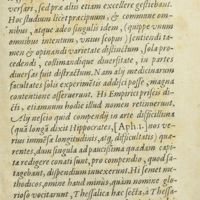 versari, sed præ aliis etiam excellere gestiebant.
Hoc studium licet præcipuum, & commune om-
nibus, atque adeo singulis idem, (quippe unum
omnibus intentum, unius scopus) sentiendi ta-
men & opinandi varietate distinctum, sola pro-
cedendi, collimandique diversitate, in partes
diversas fuit distractum. Nam aly medicinarum
facultates solis experimētis addisci posse, magna
contentione asserebant. Hi Empirici prisis di-
cti, etiamnum hodie illud nomen retinuerunt.
Aly nescio quid compendij in arte difficillima
(quā longā dixit Hippocrates, [Aph. 1.] nō ve-
rius immēsæ longitudinis, atq; difficultatis) quæ-
rentes, dum singula ad paucissima quædam capi-
ta redigere conati sunt, pro compendio, quod sa-
tagebant, dispendium invexerunt. Hi semet me-
thodicos, omine haud minùs, quàm nomine glo-
rioso vocitarunt. Thessalica hæc secta, à Thessa-